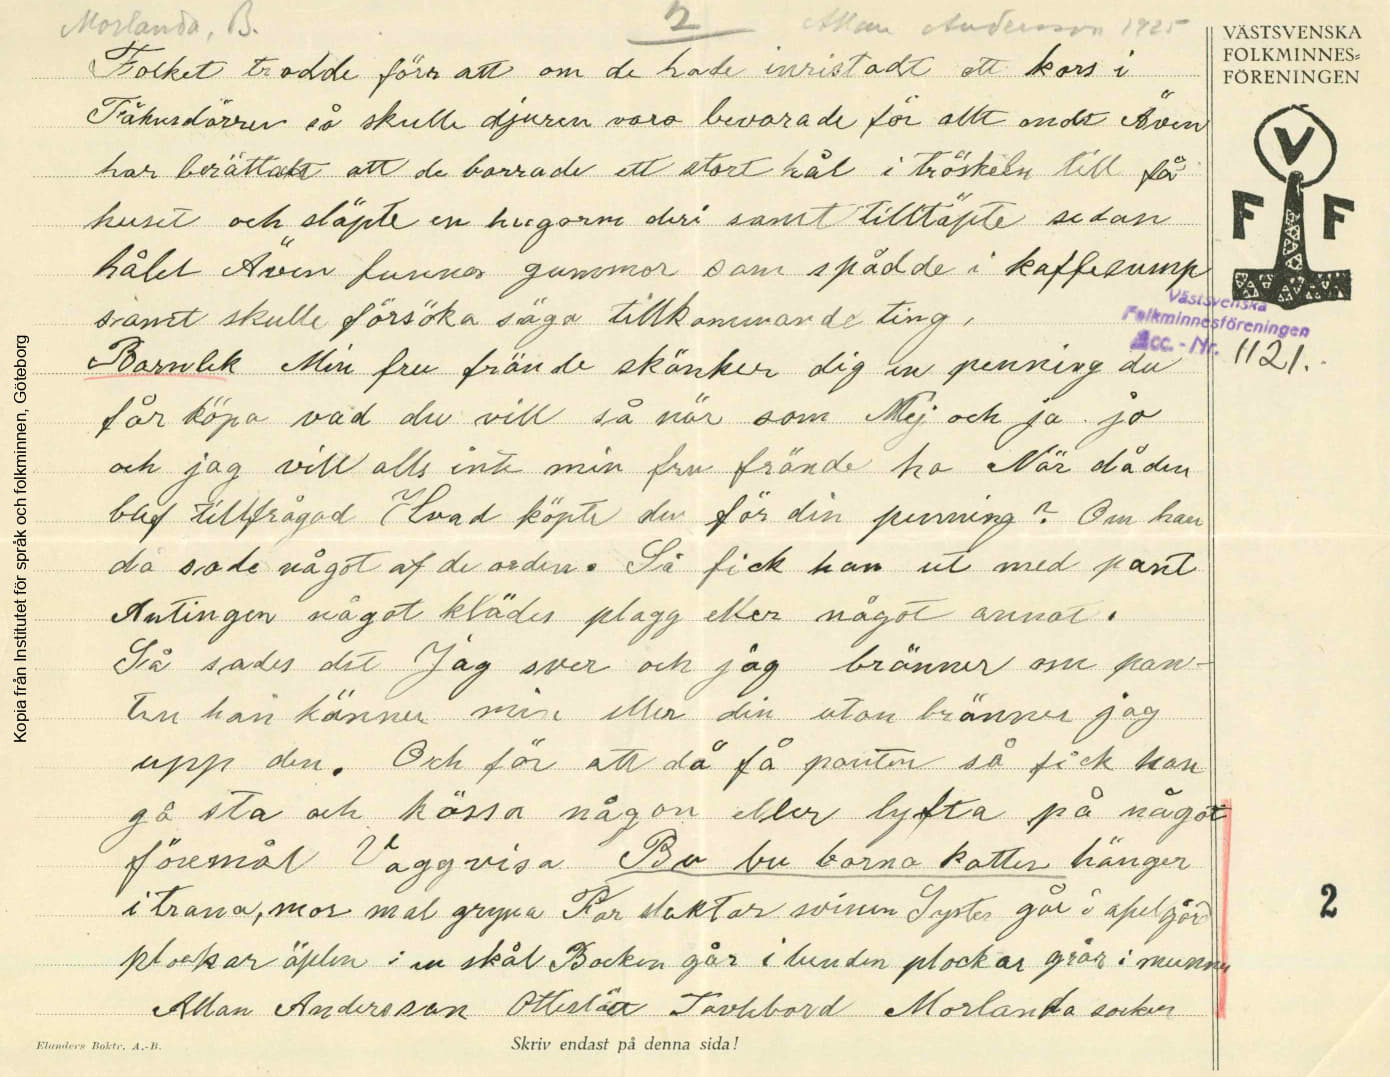 Morlanda, B.
2
Allan Andersson 1925
VÄSTSVENSKA
FOLKMINNES=
FÖRENINGEN
V
F F
Folket trodde förr att om de hade inristadt ett kors i
Fåhusdörren så skulle djuren vara bevarade för allt ondt Även
har berättadt att de borrade ett stort hål i tröskeln till få
huset och släpte en hugorm deri samt tilltäpte sedan
hålet Även funnos gummor som spådde i kaffesump
samt skulle försöka säga tillkommande ting.
Västsvenska
Folkminnesföreningen
Acc. - Nr. 1121.
Barnlek Min fru frände skänker dig en penning du
får köpa vad du vill så när som Nej och ja jo
och jag vill alls inte min fru frände ha När då den
blef tillfrågad Hvad köpte du för din penning? Om han
då sade något af de orden. Så fick han ut med pant
Antingen något klädes plagg eller något annat.
Så sades det Jag sver och jag bränner om pan-
ten han känner min eller din utan bränner jag
upp den. Och för att då få panten så fick han
gå sta och kössa någon eller lyfta på något
föremål Vaggvisa Bu bu barna katten hänger
i trana, mor mal gryna Far slaktar svinen Syster går i apelgård
plockar äplen i en skål Bocken går i lunden plockar grås i munnen
Allan Andersson Otteslätt Tavlebord Morlanda socken
2
Elanders Boktr. A.-B.
Skriv endast på denna sida!
Kopia från Institutet för språk och folkminnen, Göteborg